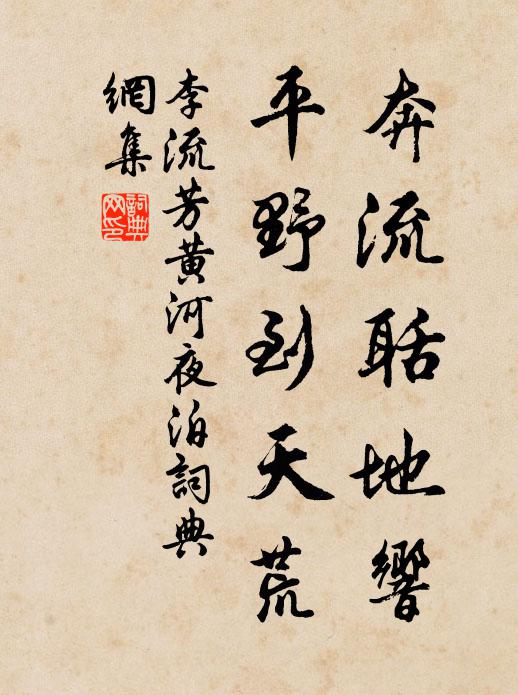 奔流聒地響
平野到天荒
李流芳黄河夜泊詞典
網集
詞典
网印